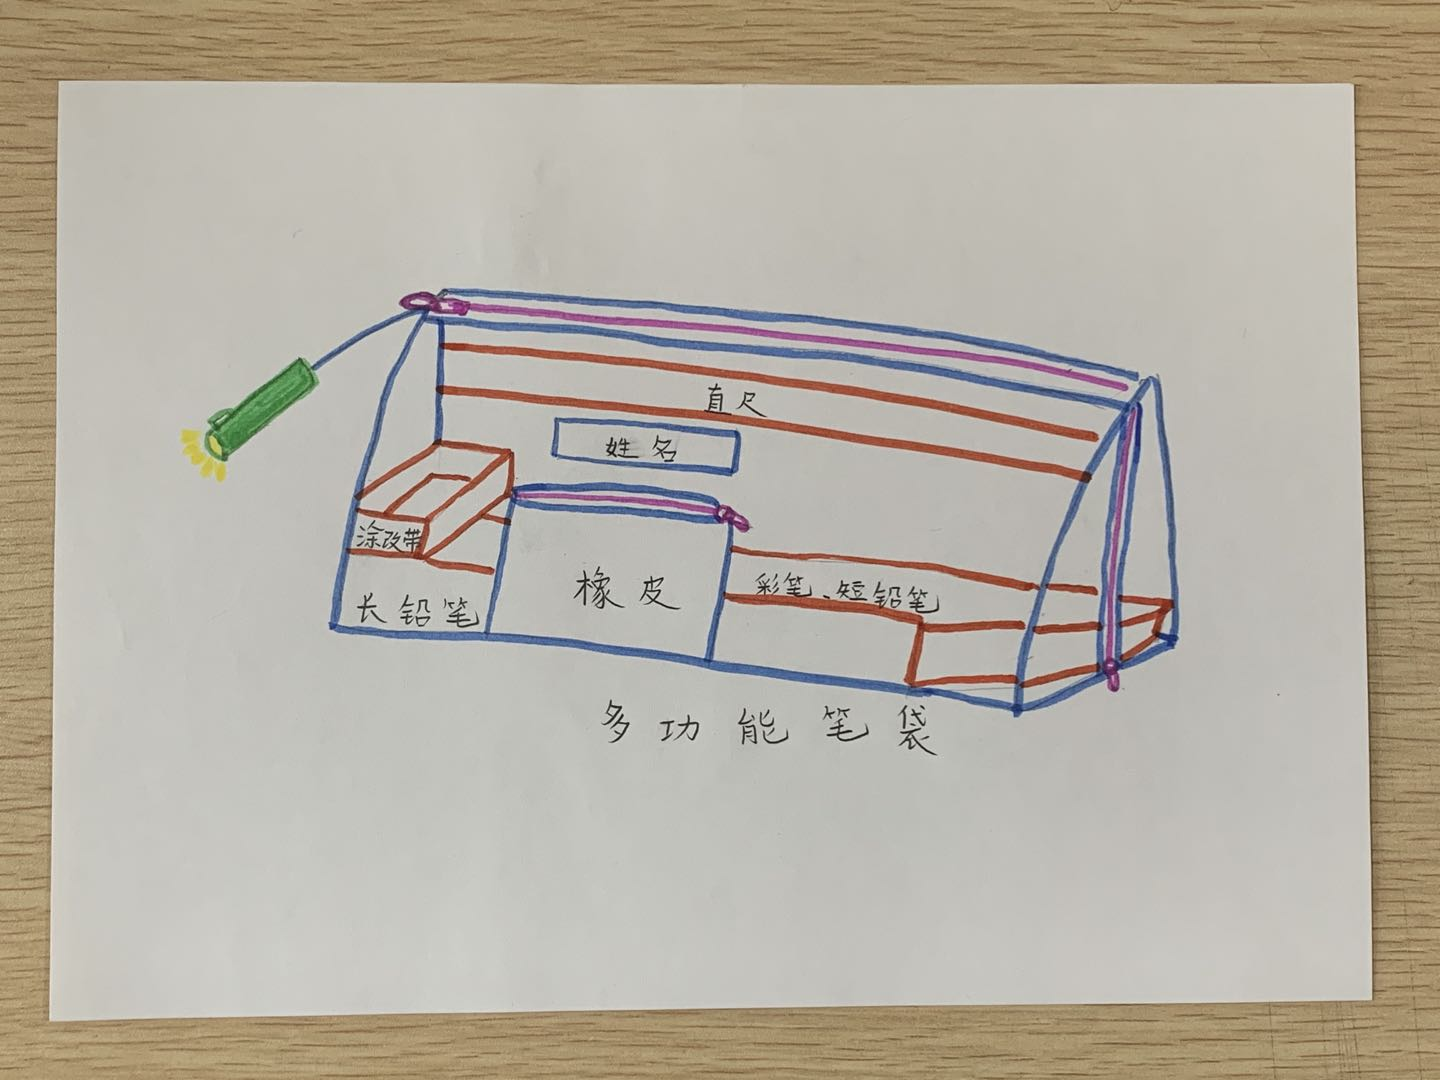 直尺
姓名
涂改带
长铅笔
橡皮
彩笔、短铅笔
多功能笔袋